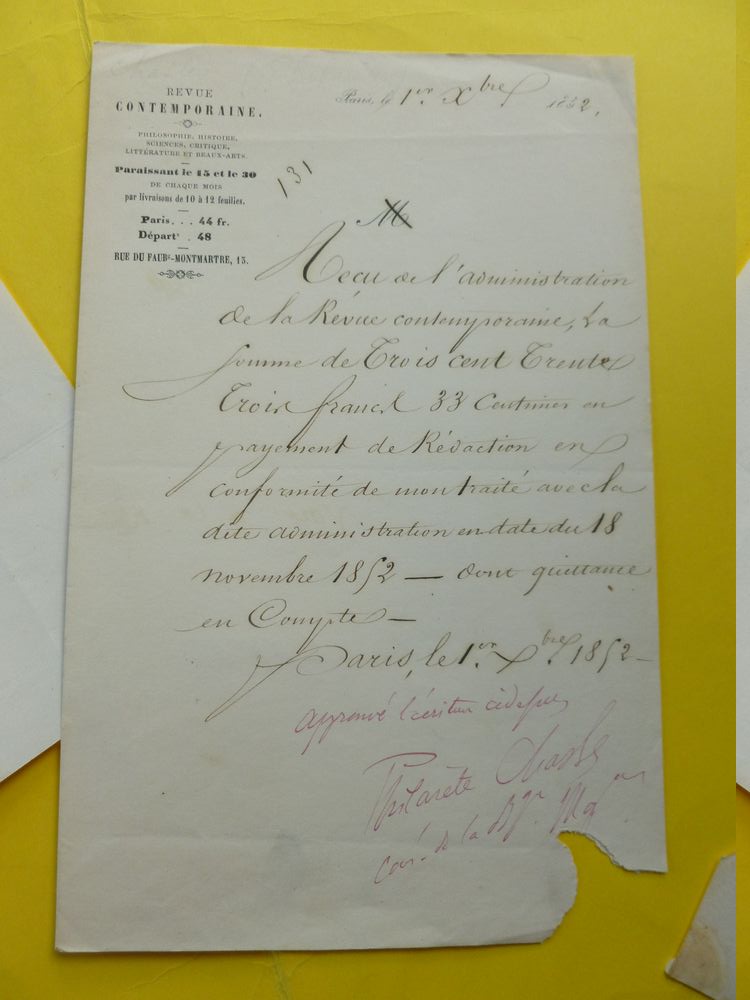 REVUE
CONTEMPORAINE.
PHILOSOPHIE, HISTOIRE,
SCIENCES, CRITIQUE,
LITTÉRATURE ET BEAUX-ARTS.
Paraissant le 15 et le 30
DE CHAQUE MOIS
par livraisons de 10 à 12 feuilles.
Paris. . . 44 fr.
Départ.ᵗ . 48
RUE DU FAUBᵍ-MONTMARTRE, 13.
Paris, le 1er. Xbre 1852.
131
M
Reçu de l'administration
de la Révue contemporaine, La
somme de Trois cent Trente
Trois francs 33 Centimes en
payement de Rédaction en
conformité de mon traité avec la
dite administration en date du 18
novembre 1852 — dont quittance
en Compte —
Paris, le 1er. Xbre. 1852 —
approuvé l'écriture ci dessus
Philarète Chasles
Con. de la Bque Maz